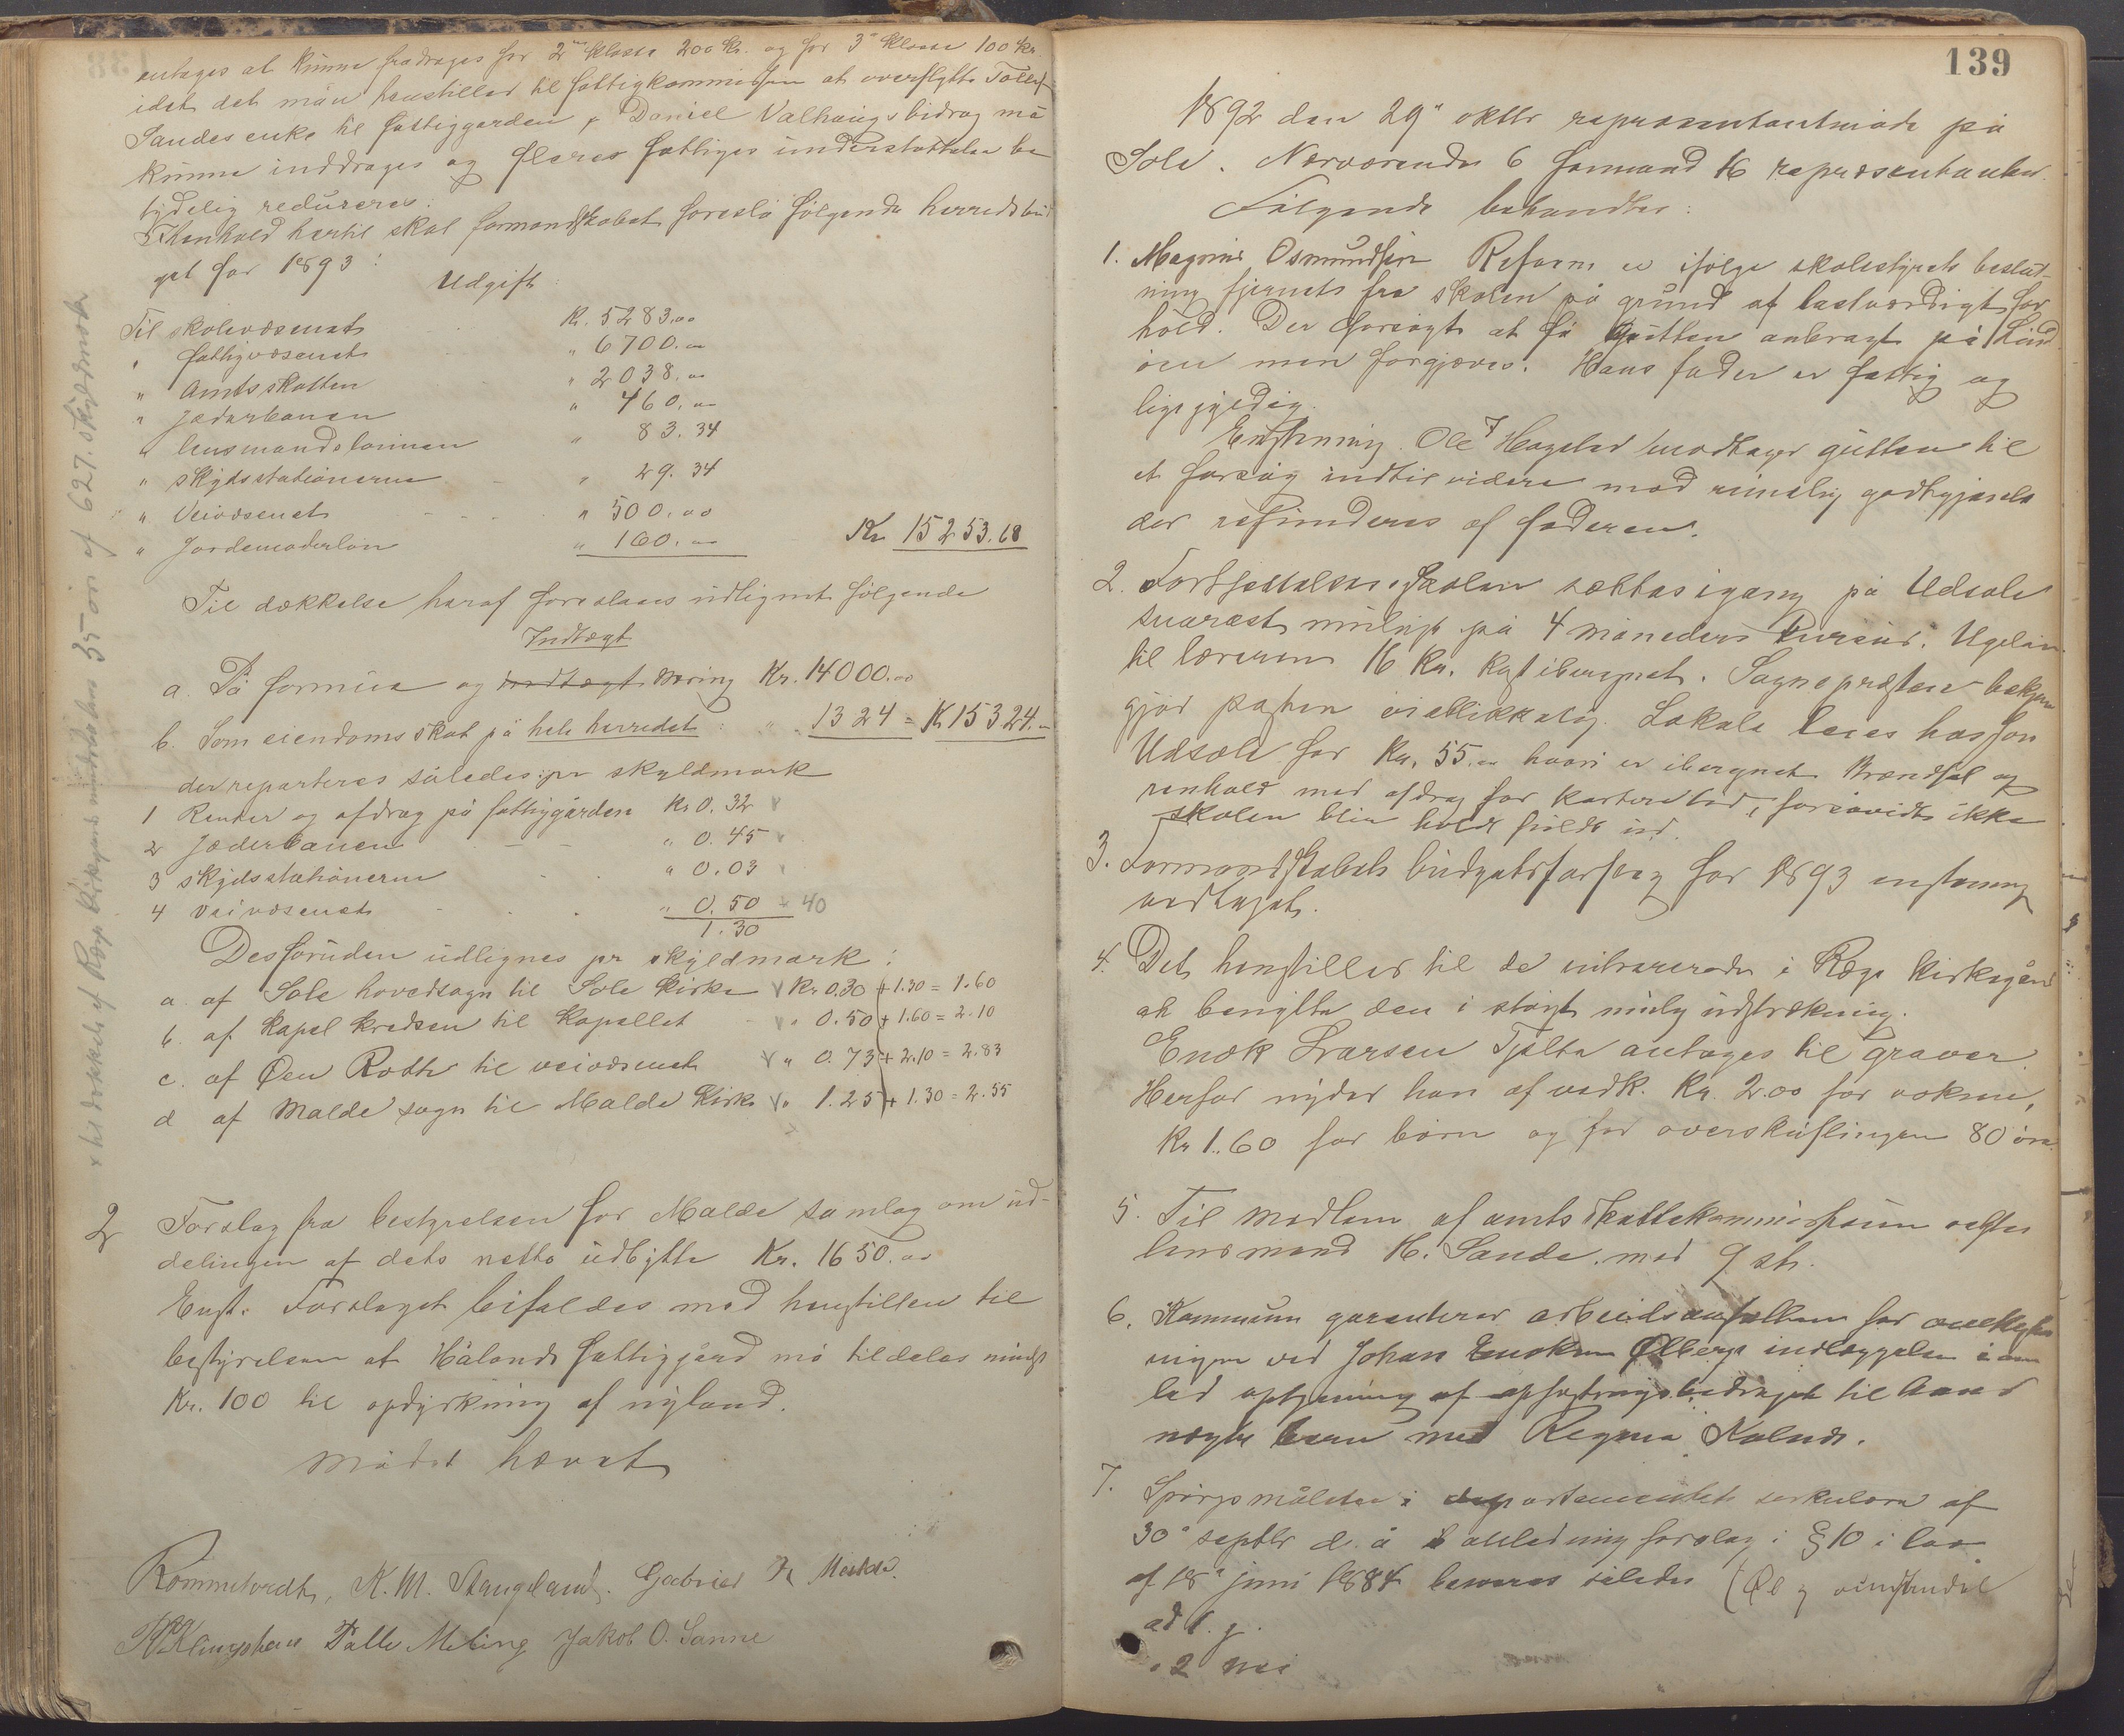 antages at kunne fradrages for 2den klasse 200 kr. og for 3e klasse 100 kr.
idet det man henstiller til fattigkommissjonen at overflytte Tollef
Sandes enke til fattiggården, Daniel Valhaugs bidrag må
kunne inddrages og fleres fattiges understøttelse be
tydelig reduceres.
I Henhold hertil skal formandskabet foreslå følgende herredsbud
get for 1893:
Udgift:
Til skolevæsenet Kr. 5283.00
" fattigvæsenet " 6700.00
" Amtsskatten " 2038.00
" Jæderbanen " 460.00
" lensmandslønnen " 83.34
" skydsstationerne " 29.34
" Veivæsenet " 500.00
" Jordemoderløn " 160.00 Kr 15253.68
Til dækkelse heraf foreslaaes udlignet følgende
Indtægt
a. På formue og indtægt næring Kr. 14000.00
b. Som eiendomsskat på hele herredet: " 1324 = K 15324.00
der reparteres således: pr skyldmark
1 Renter og afdrag på fattiggården Kr 0.32
2 Jæderbanen " 0.45
3 skydsstationerne " 0.03
4 Veivæsenet " 0.50 40
1.30
Desforuden udlignes pr skyldmark:
a. af Sole hovedsogn til Sole Kirke Kr 0.30 + 1.30 = 1.60
b. af Kapel kredsen til Kapellet " 0.50 + 1.60 = 2.10
c. af Øen Rodte til veivæsenet " 0.73 + 2.10 = 2.83
d af Malde sogn til Malde Kirke " 1.25 + 1.30 = 2.55
x til dækkelse af Ræge Kirkegård 35 øre af 627 skyldmark
2 Forslag fra bestyrelsen for Malde samlag om ud-
delingen af dets netto udbytte Kr. 1650.00
Enst. Forslaget bifaldes med henstillen til
bestyrelsen at Hålands fattiggård må tildeles mindst
Kr. 100 til opdyrkning af nyland.
Mødet hævet
Rommetvedt, K. M. Stangeland. Gabriel Malde.
Tolle Meling Jakob O. Sømme
139
1892 den 29" oktbr repræsentantmøde på
Sole. Nærværende 6 formænd 16 repræsentanter.
Følgende behandles:
1. Magnus Osmundsen Refsnes er ifølge skolestyrets beslut-
ning fjernet fra skolen på grund af lastværdigt for
hold. Der forsøgt at få gutten anbragt på Lind
øen men forgjæves. Hans fader er fattig og
ligegyldig.
Enstemmig. Ole T Hogstad modtager gutten til
et forsøg indtil videre mod rimelig godtgjørelse
der refunderes af faderen.
2. Fortsættelsesskolen sættes igang på Udsole
snarest muligt på 4 måneders kursus. Ugeløn
til læreren 16 Kr. kost iberegnet. Sognepræsten bekjendt
gjør posten øieblikkelig. Lokale leies hos
Udsole for Kr. 55.00 hvori er iberegnet Brændsel og
renhold med afdrag for kortere tid, forsåvidt ikke
skolen blir holdt fuldt ud.
3. Formandskabets budgetsforslag for 1893 enstemmig
vedtaget.
4. Det henstilles til de interesserede i Ræge kirkegård
at benytte den i størst mulig udstrækning.
Enok Larsen Tjelta antages til graver.
Herfor nyder han af vedk. Kr. 2.00 for voksne,
Kr 1.60 for børn og for overskuflingen 80 øre.
5. Til medlem af amtsskattekommissionen valgtes
lensmand H. Sande med 9 st.
6. Kommunen garanterer arbeidsanstalten for omkostnin
ningen ved Johan Enoksen Ølbergs indlæggelse i an
led aftjening af opfostringsbidraget til hans
uægte barn med Regine Kolnes.
7. Spørgsmålene i departementets cirkulære af
30" septbr d. å. i anledning forslag i § 10 i lov
af 18" juni 1884 besvares således (Øl og vinhandel
ad 1. j.
" 2 nei